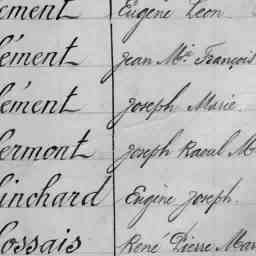 ément Eugène Léon
ément Jean Mie François
ément Joseph Marie.
ermont Joseph Raoul M
inchard Eugène Joseph.
ossais René Pierre Mar